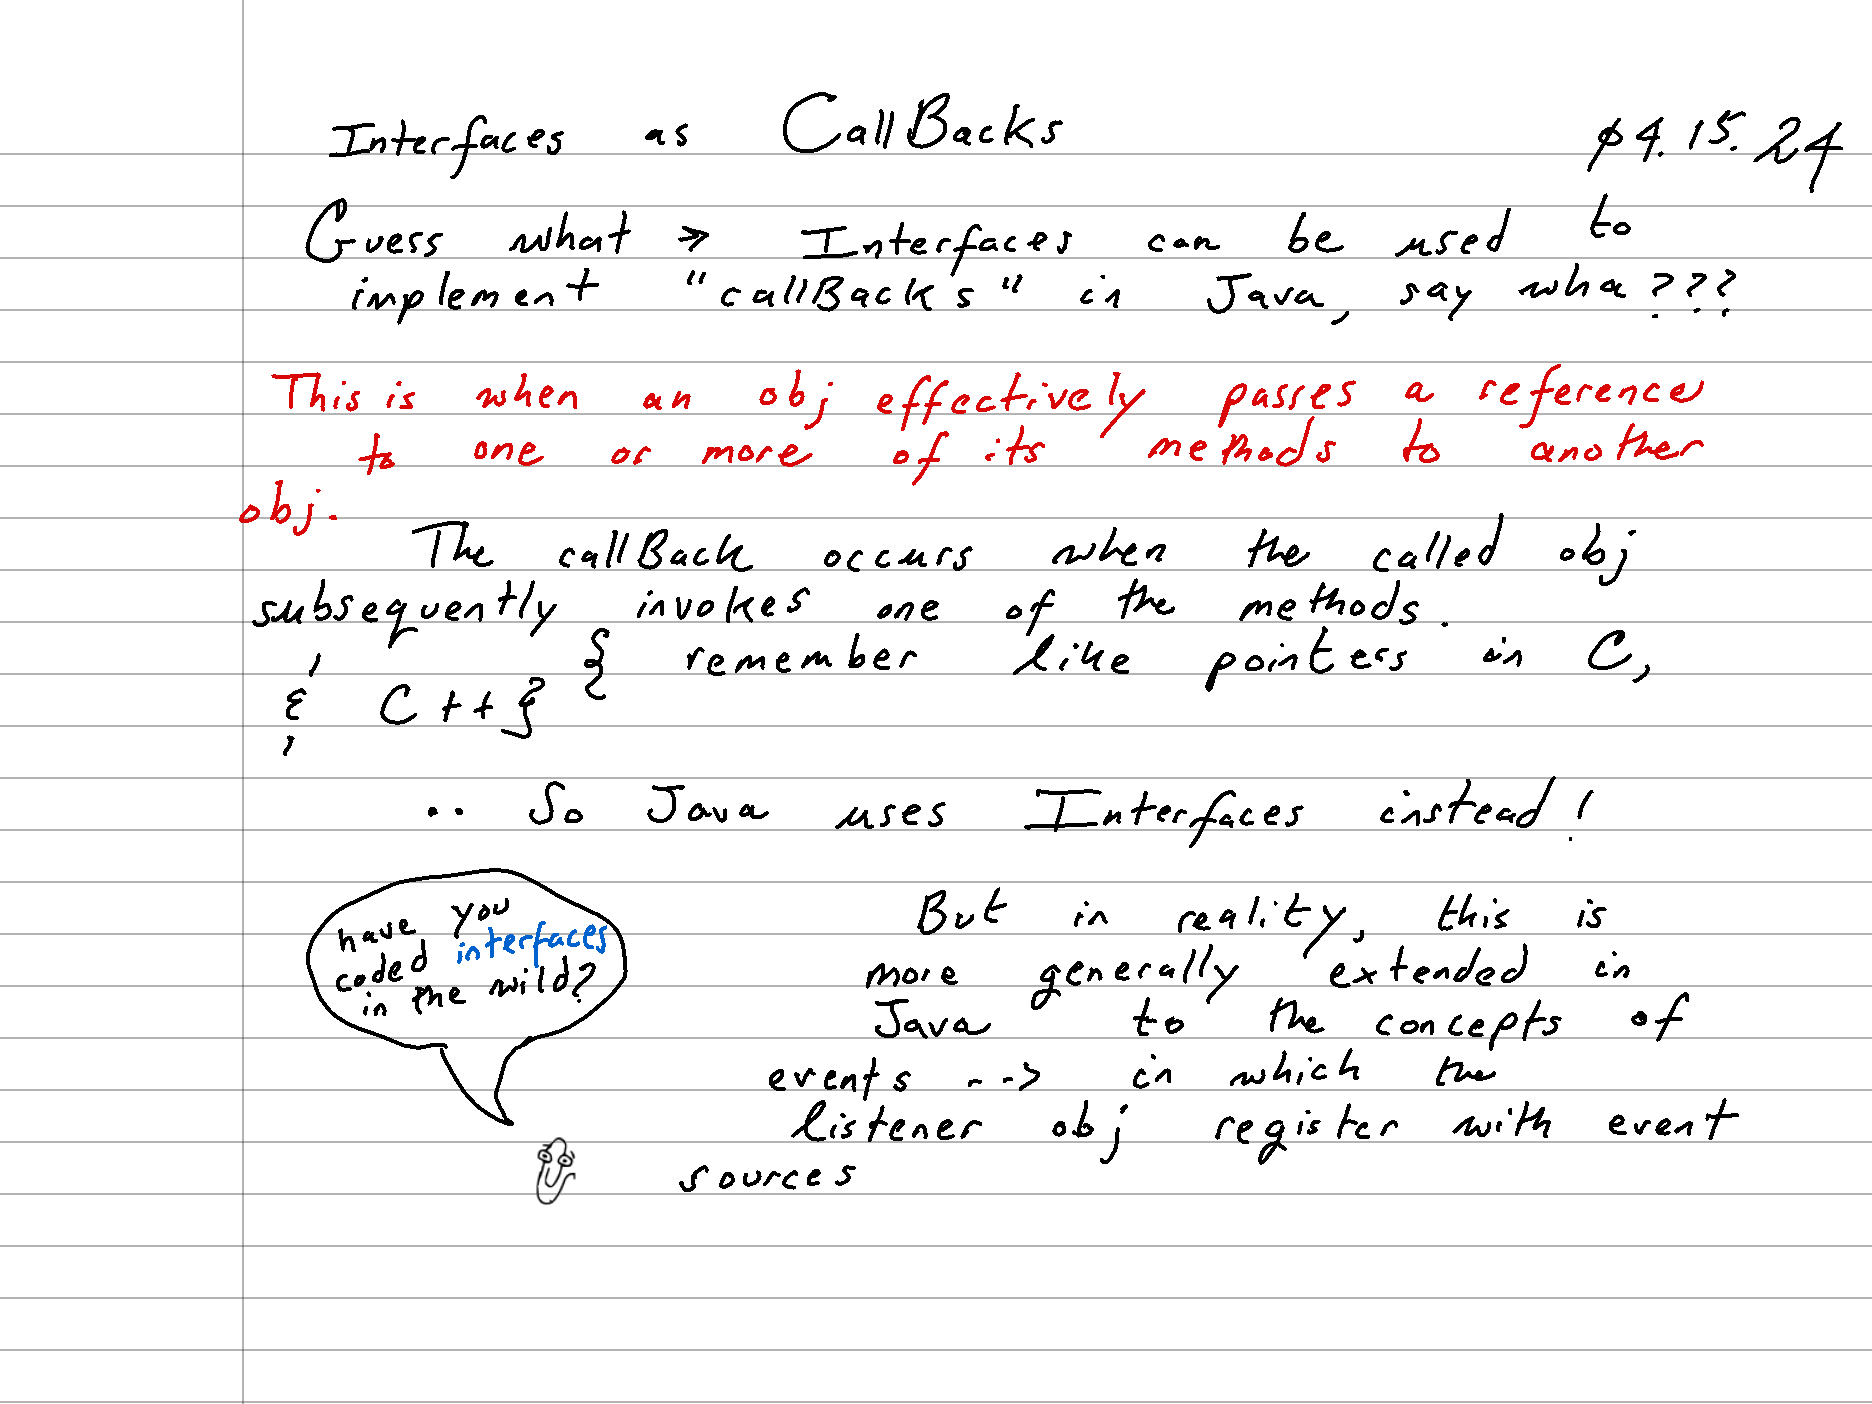 Interfaces as CallBacks 04.15.24
Guess what => Interfaces can be used to
implement "callBacks" in Java, say wha???
This is when an obj effectively passes a reference
to one or more of its methods to another
obj.
The callBack occurs when the called obj
subsequently invokes one of the methods.
{ remember like pointers in C,
& C++}
.. So Java uses Interfaces instead!
have you
coded interfaces
in the wild?
But in reality, this is
more generally extended in
Java to the concepts of
events --> in which the
listener obj register with event
sources